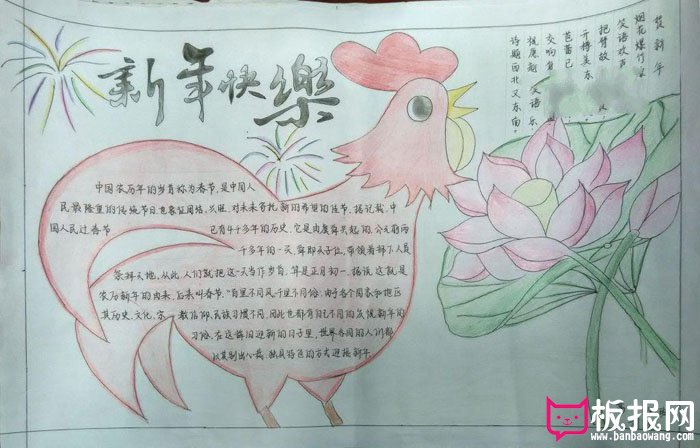 新年快樂
贺新年
烟花爆竹
笑语欢声
把臂故
开博美东
芭蕾已
交响自
祝愿朝 笑语乐
诗题西北又东南。
中国农历年的岁首称为春节,是中国人
民最隆重的传统节日也象征团结、兴旺,对未来寄托新的希望的佳节。据记载,中
国人民过春节 已有4千多年的历史,它是由虞舜兴起的。公元前两
千多年的一天,舜即天子位,带领着部下人员
祭拜天地,从此,人们就把这一天当作岁首,算是正月初一。据说,这就是
农历新年的由来,后来叫春节。"百里不同风千里不同俗,由于各个国家和地区
其历史、文化、宗 教信仰、民族习惯不同,因此也都有自己不同的欢度新年的
习俗。在这辞旧迎新的日子里,世界各国的人们都
以其别出心裁、独具特色的方式迎接新年
板报网
www.banbaowang.com